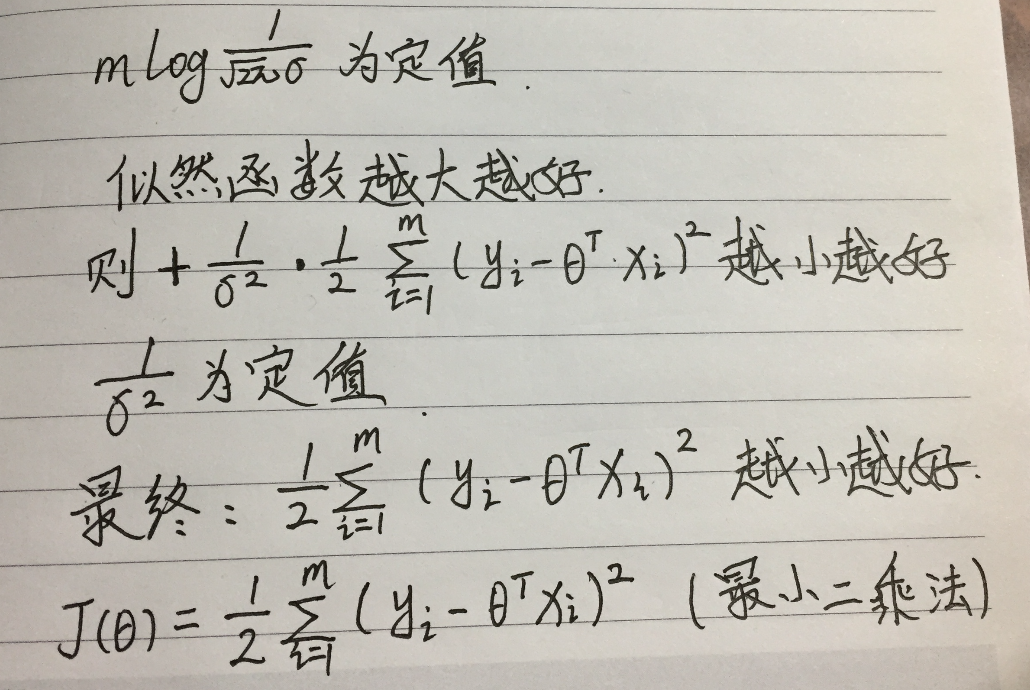 m log 1/(√(2π)σ) 为定值.
似然函数越大越好.
则 + 1/σ² · 1/2 ∑_{i=1}^{m} (y_i - θ^T · x_i)² 越小越好
1/σ² 为定值.
最终: 1/2 ∑_{i=1}^{m} (y_i - θ^T x_i)² 越小越好.
J(θ) = 1/2 ∑_{i=1}^{m} (y_i - θ^T x_i)² (最小二乘法)